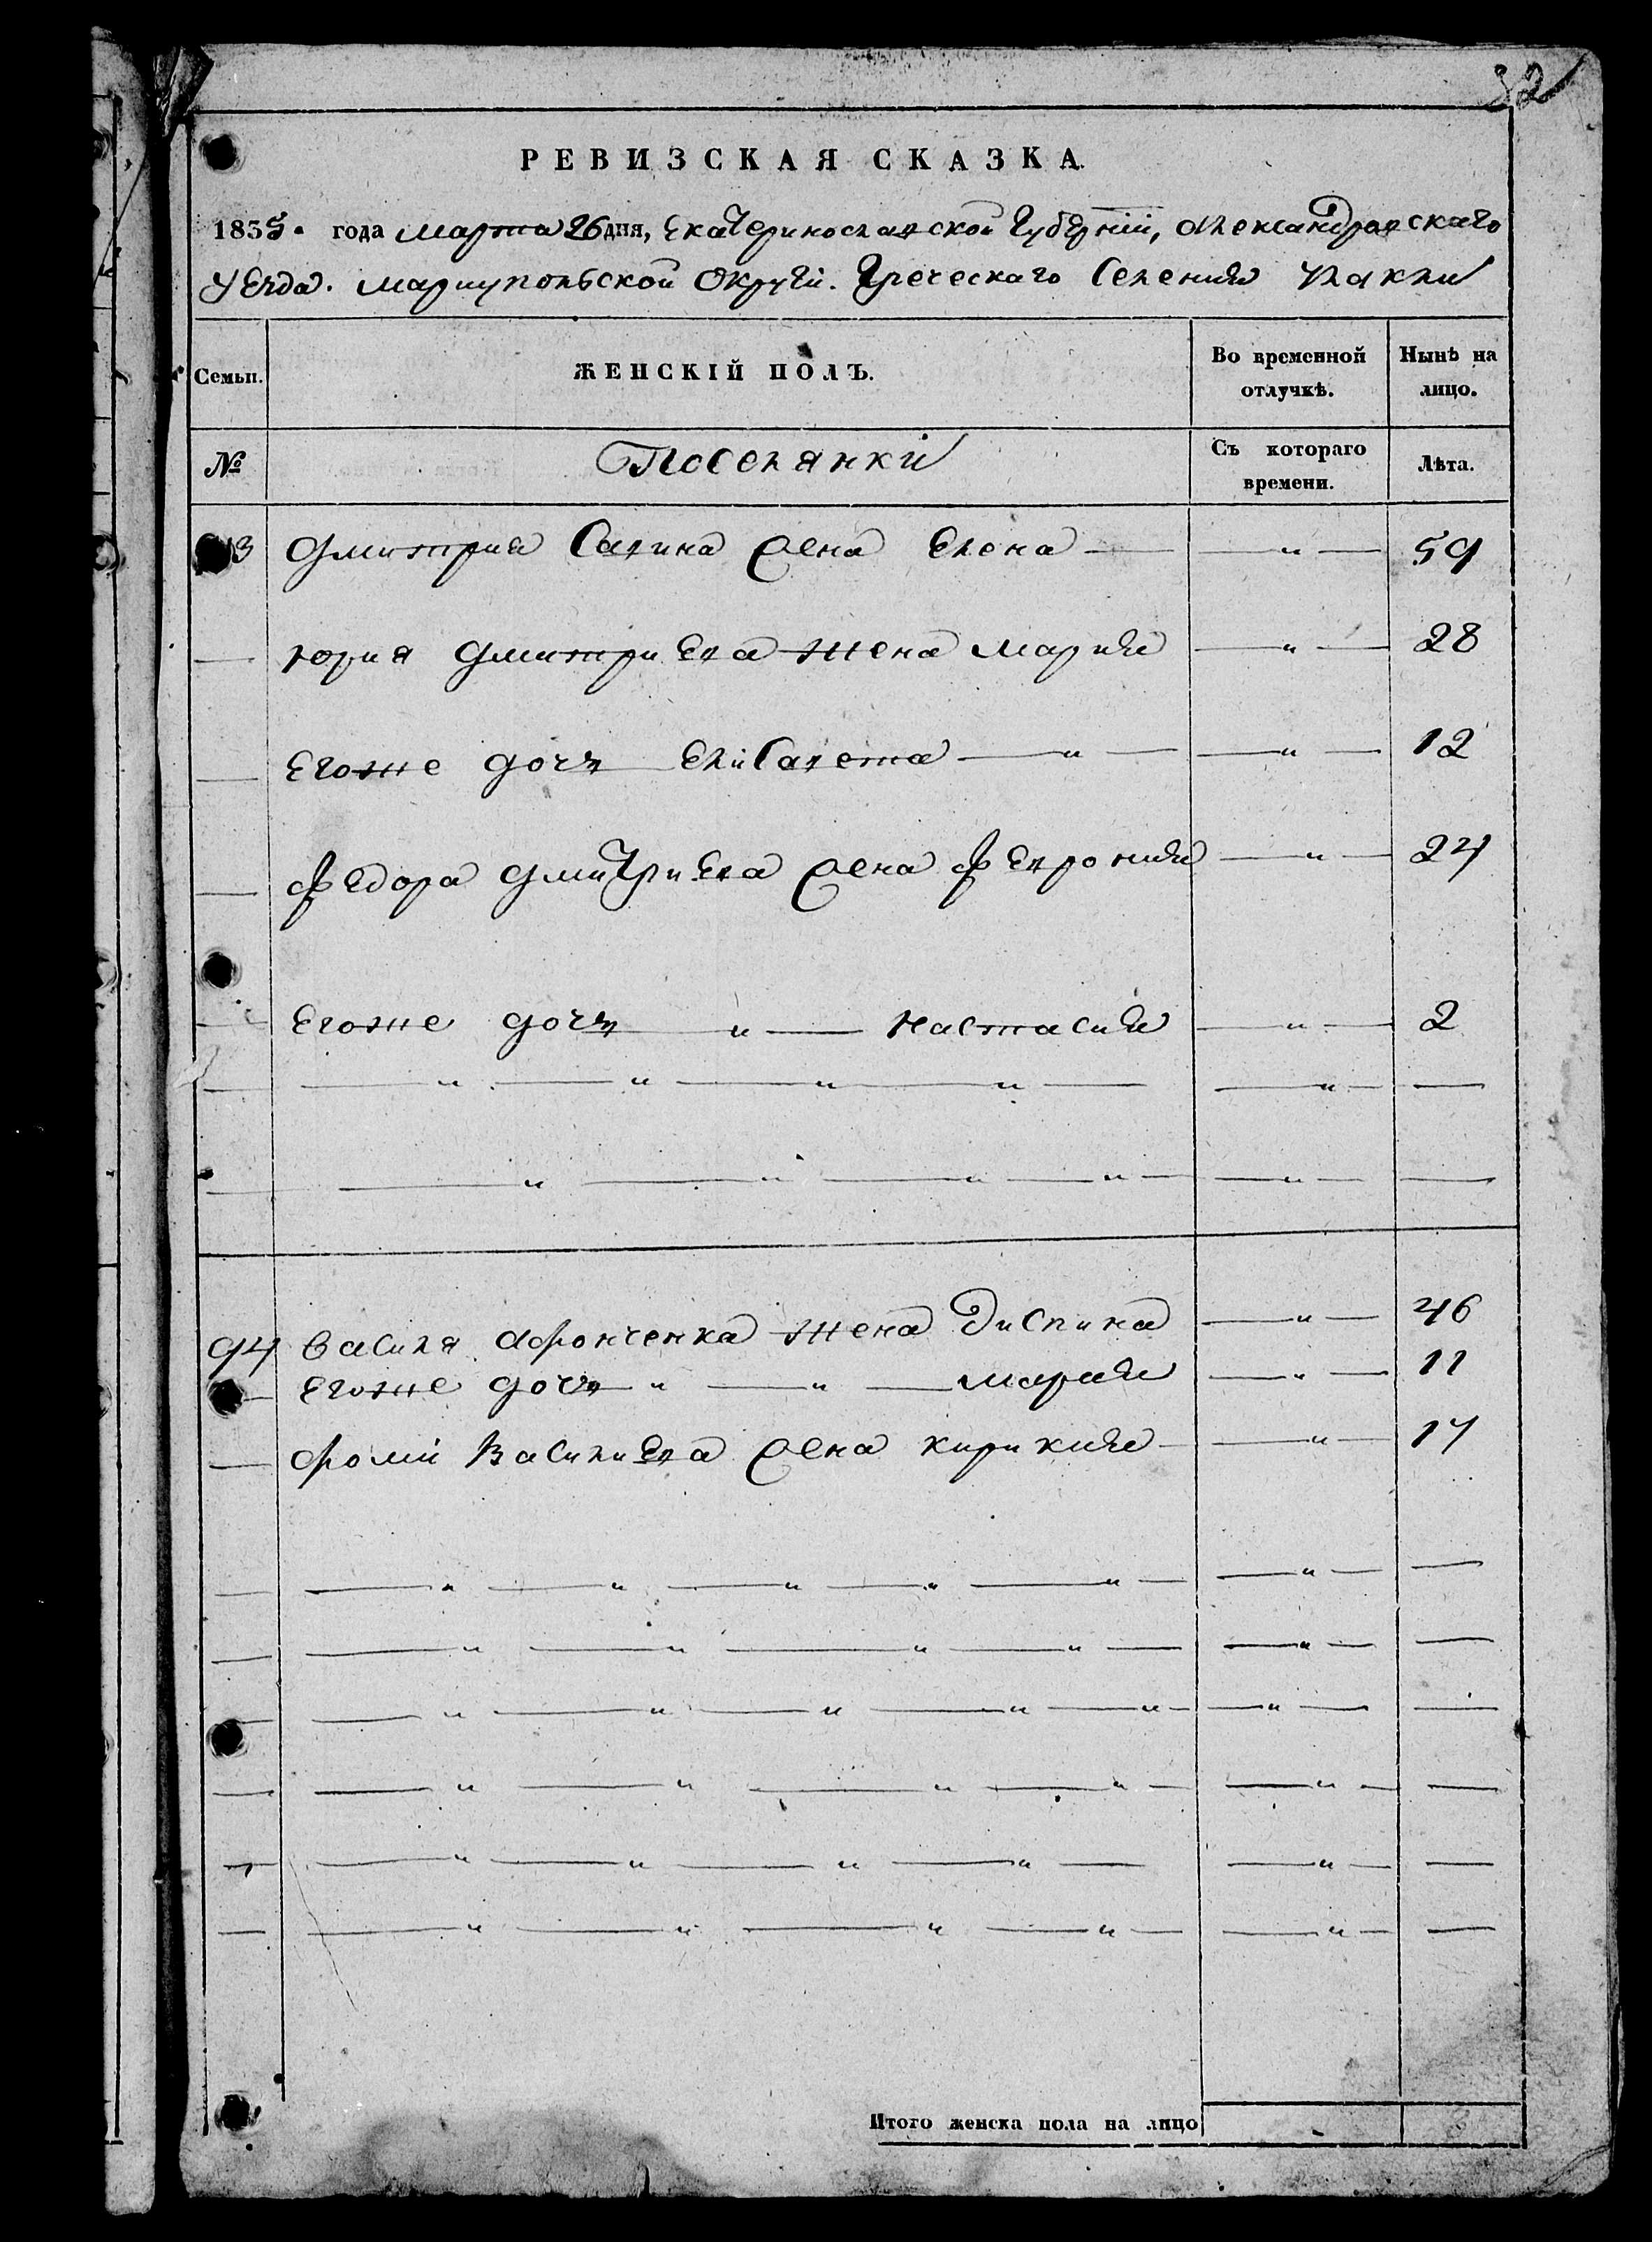 32
РЕВИЗСКАЯ СКАЗКА.
1835. года марта 26 дня, Екатеринославской Губерніи, Александровскаго
уезда. мариупольской Округи. Греческаго Селения
Семьи. ЖЕНСКІЙ ПОЛЪ. Во временной отлучкѣ. Нынѣ на лицо.
№ Поселянки Съ котораго времени. Лѣта.
Дмитрия Савина жена Елена — — " — 59
— Юрия Дмитриева жена мария — " — 28
— Егоже дочь Елисавета — " — — " — 12
— Федора Дмитриева жена Феврония — " — 24
— Егоже дочь — " — Настасия — " — 2
— — " — " — " — " — — " — —
— — " — " — " — " — — " — —
94 Василя Афонченка жена Диспина — " — 46
— Егоже дочь — " — " — мария — " — 11
— Фоми Василиева жена кирикия — — " — 17
— — " — " — " — " — " — — " — —
— — " — " — " — " — — " — —
— — " — " — " — " — " — — " — —
— — " — " — " — " — — " — —
— — " — " — " — " — — " — —
— — " — " — " — " — — " — —
Итого женска пола на лицо